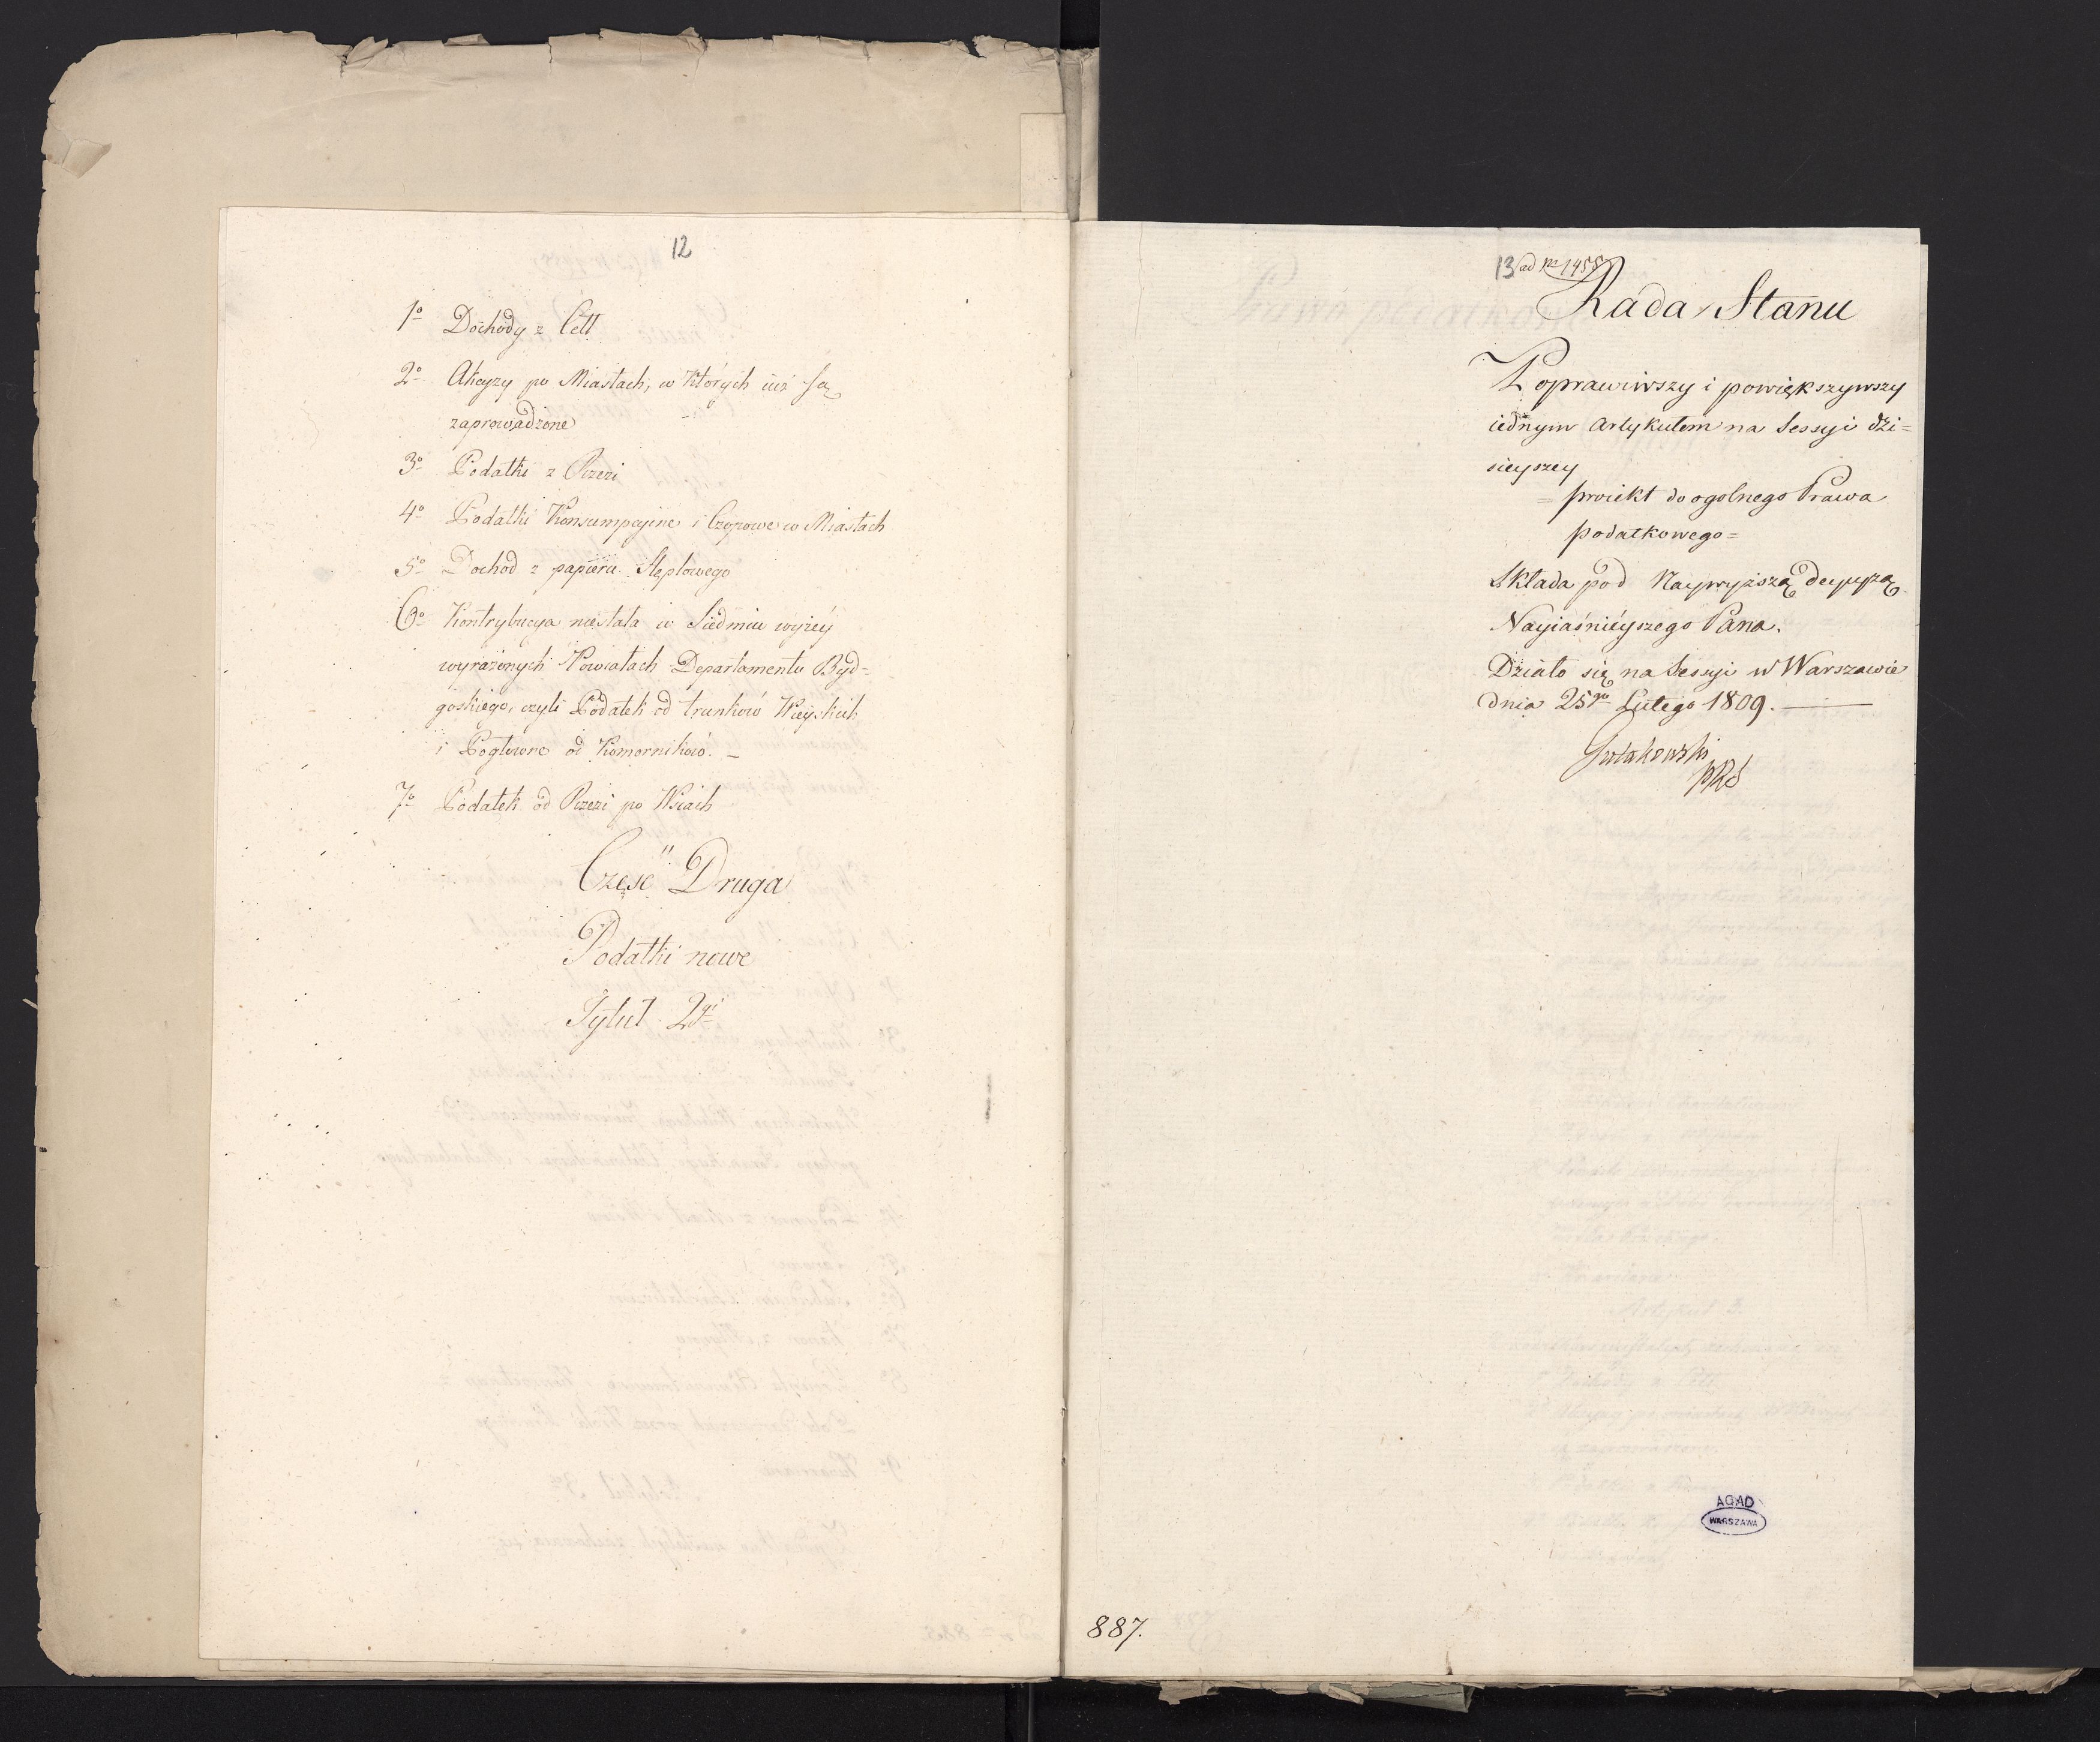 12
1º Dochody z Cell
2º Akcyzy po Miastach, w których iuż są
zaprowadzone
3º Podatki z Rzezi
4º Podatki Konsumpcyine i Czopowe w Miastach
5º Dochod z papieru Stęplowego
6º Kontrybucya niestała w Siedmiu wyżey
wyrażonych Powiatach Departamentu Byd=
goskiego, czyli Podatek od trunków Wieyskich
i Pogłowne od Komorników. –
7º Podatek od Rzezi po Wsiach
Część Druga
Podatki nowe
Tytuł 2gi
13 ad Nr 1455
Rada Stanu
Poprawiwszy i powiększywszy
iednym Artykułem na Sessyi dzi=
sieyszey
= proiekt do ogolnego Prawa
podatkowego=
Składa pod Naywyższą decyzyą
Nayiaśnieyszego Pana.
Działo się na Sessyi w Warszawie
dnia 25go Lutego 1809.
Gutakowski
PRS
AGAD
WARSZAWA
887.